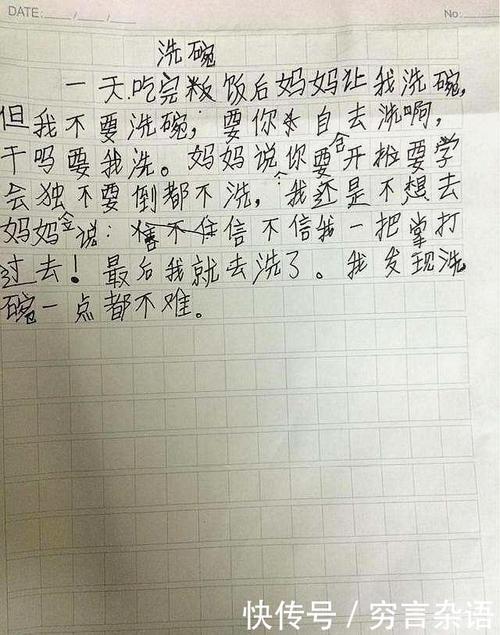 DATE: / /
No:
洗碗
一天吃完饭后妈妈让我洗碗,
但我不要洗碗,要你自去洗啊,
干吗要我洗。妈妈说你要开始要学
会独不要倒都不洗,我还是不想去
妈妈说:信不信我一把掌打
过去!最后我就去洗了。我发现洗
碗一点都不难。
快传号/穷言杂语